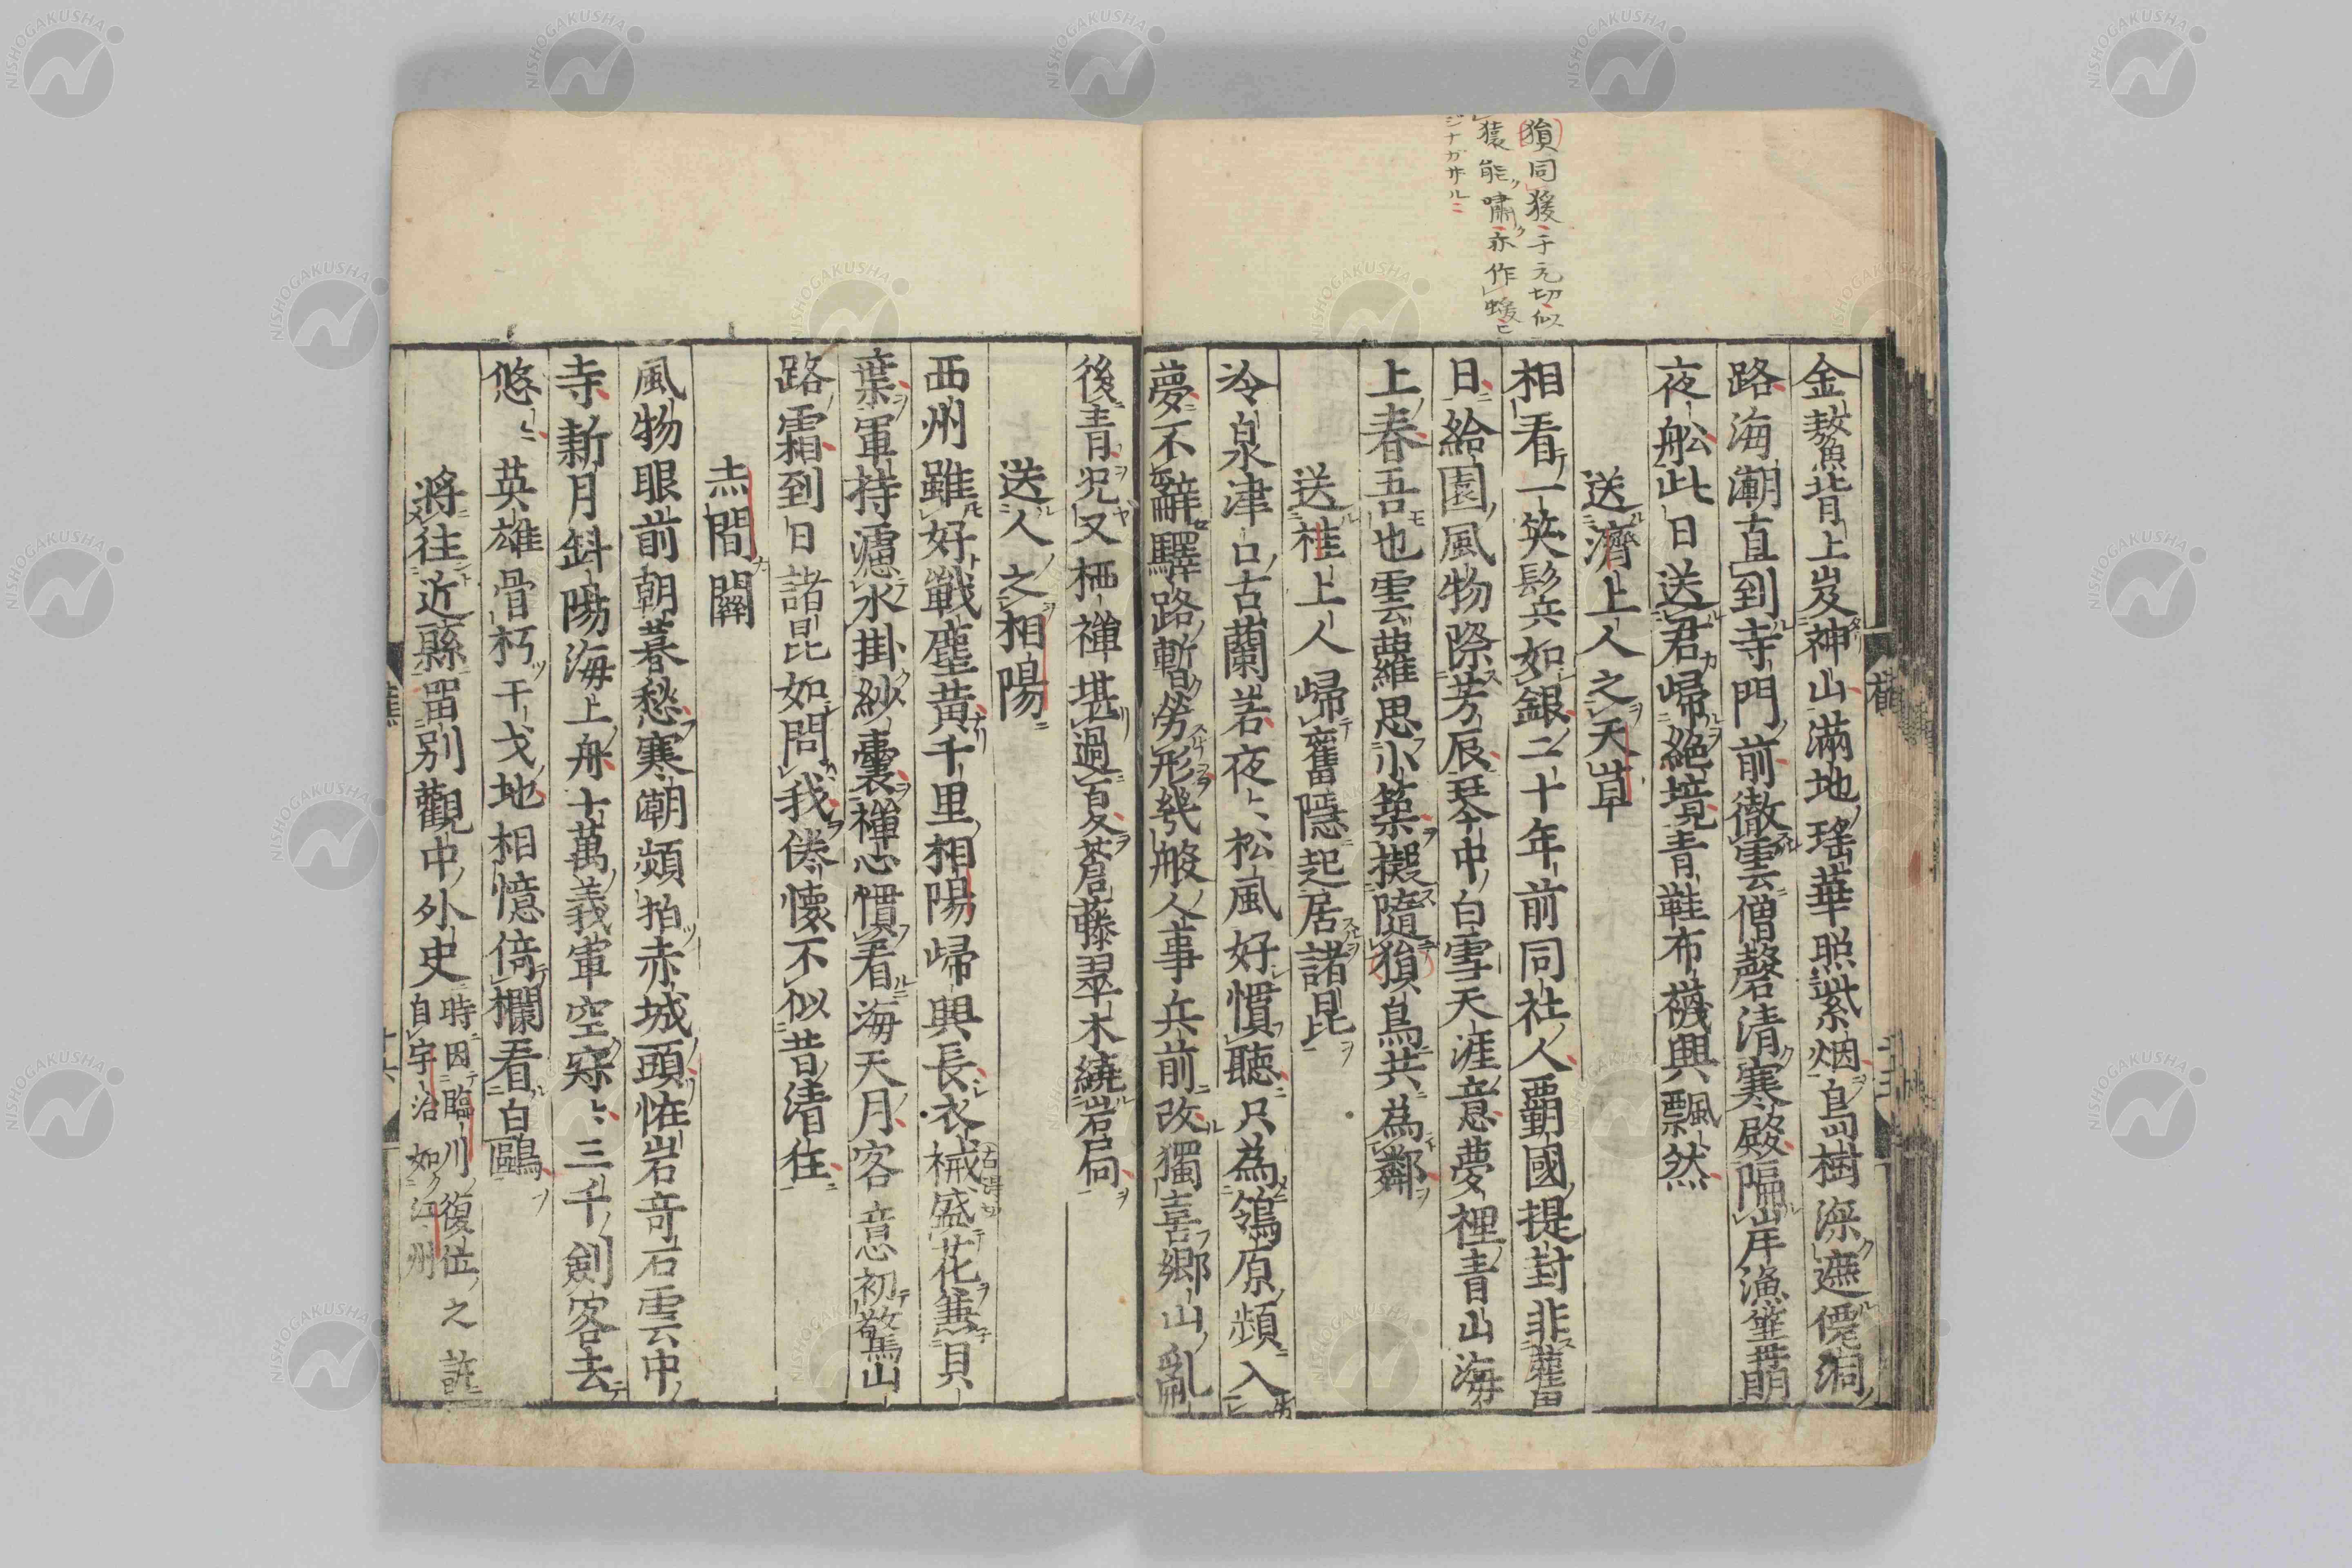 猨同猨于元切似
猿能嘯亦作蝯亡
シナガサル
金鰲背上岌神山滿地瑤華照紫烟島樹深遮僊洞
路海潮直到寺門前徹雲僧磬清寒殿隔岸漁篷
夜舩此日送君歸絶境青鞋布襪興飄然
送濟上人之天草
相看一笑髟兵如銀二十年前同社人覇國提封非舊
日給園風物際芳辰琴中白雪天涯意夢裡青山海
上春吾也雲蘿思小築擬隨猨鳥共為鄰
送桂上人歸舊隱起居諸昆
冷泉津口古蘭若夜〻松風好慣聽只為鴒原頻入
夢不辭驛路暫勞形幾般人事兵前改獨喜鄉山亂
後青児又栖禪堪過夏蒼藤翠木繞岩扃
送人之相陽
西州雖好戰塵黃千里相陽歸興長衣裓盛花兼貝
葉軍持濾水掛紗囊禪心慣看海天月客意初驚山
路霜到日諸昆如問我倦懷不似昔清狂
赤間關
風物眼前朝暮愁寒潮頻拍赤城頭恠岩竒石雲中
寺新月斜陽海上舟十萬義軍空寂〻三千劍客去
悠〻英雄骨朽干戈地相憶倚欄看白鷗
將往近縣留別觀中外史
時因臨川復位之訴
自宇治如江州